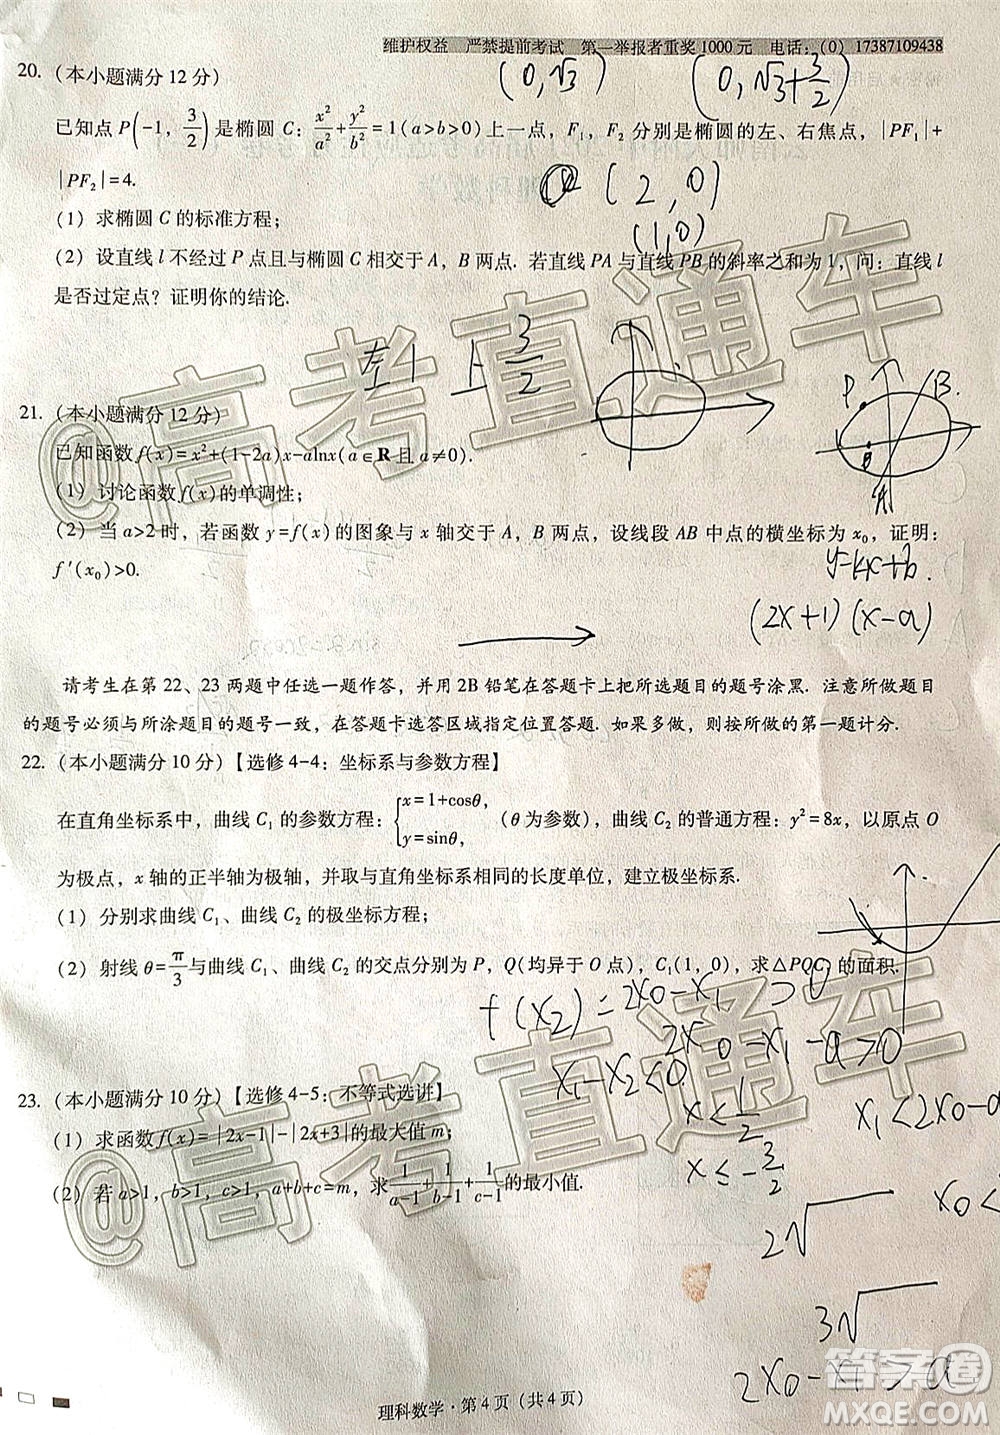 维护权益　严禁提前考试　第一举报者重奖1000元　电话：(0) 17387109438
(0,√3)　(0,√3+3/2)
20.（本小题满分12分）
已知点P(-1, 3/2)是椭圆C：x²/a²+y²/b²=1(a>b>0)上一点，F₁，F₂分别是椭圆的左、右焦点，|PF₁|+
|PF₂|=4.
(2,0)
（1）求椭圆C的标准方程；
(1,0)
（2）设直线l不经过P点且与椭圆C相交于A，B两点. 若直线PA与直线PB的斜率之和为1，问：直线l
是否过定点？证明你的结论.
左1　上3/2
P　B
A
21.（本小题满分12分）
已知函数f(x)=x²+(1-2a)x-alnx(a∈R且a≠0).
（1）讨论函数f(x)的单调性；
（2）当a>2时，若函数y=f(x)的图象与x轴交于A，B两点，设线段AB中点的横坐标为x₀，证明：
f′(x₀)>0.
y=kx+b.
(2x+1)(x-a)
请考生在第22、23两题中任选一题作答，并用2B铅笔在答题卡上把所选题目的题号涂黑. 注意所做题目
的题号必须与所涂题目的题号一致，在答题卡选答区域指定位置答题. 如果多做，则按所做的第一题计分.
22.（本小题满分10分）【选修4-4：坐标系与参数方程】
在直角坐标系中，曲线C₁的参数方程：{x=1+cosθ, y=sinθ,（θ为参数），曲线C₂的普通方程：y²=8x，以原点O
为极点，x轴的正半轴为极轴，并取与直角坐标系相同的长度单位，建立极坐标系.
（1）分别求曲线C₁、曲线C₂的极坐标方程；
（2）射线θ=π/3与曲线C₁、曲线C₂的交点分别为P，Q(均异于O点)，C₁(1，0)，求△PQC₁的面积.
f(x₂)=2x₀-x₁>0
2x₀-x₁-a>0
x₁-x₂<0
23.（本小题满分10分）【选修4-5：不等式选讲】
x<1/2
x₁<2x₀-a
（1）求函数f(x)=|2x-1|-|2x+3|的最大值m；
x≤-3/2
（2）若a>1，b>1，c>1，a+b+c=m，求1/(a-1)+1/(b-1)+1/(c-1)的最小值.
x₀<
2√
3√
2x₀-x₁>a
理科数学·第4页（共4页）
@高考直通车
@高考直通车
答案圈
MXQE.COM